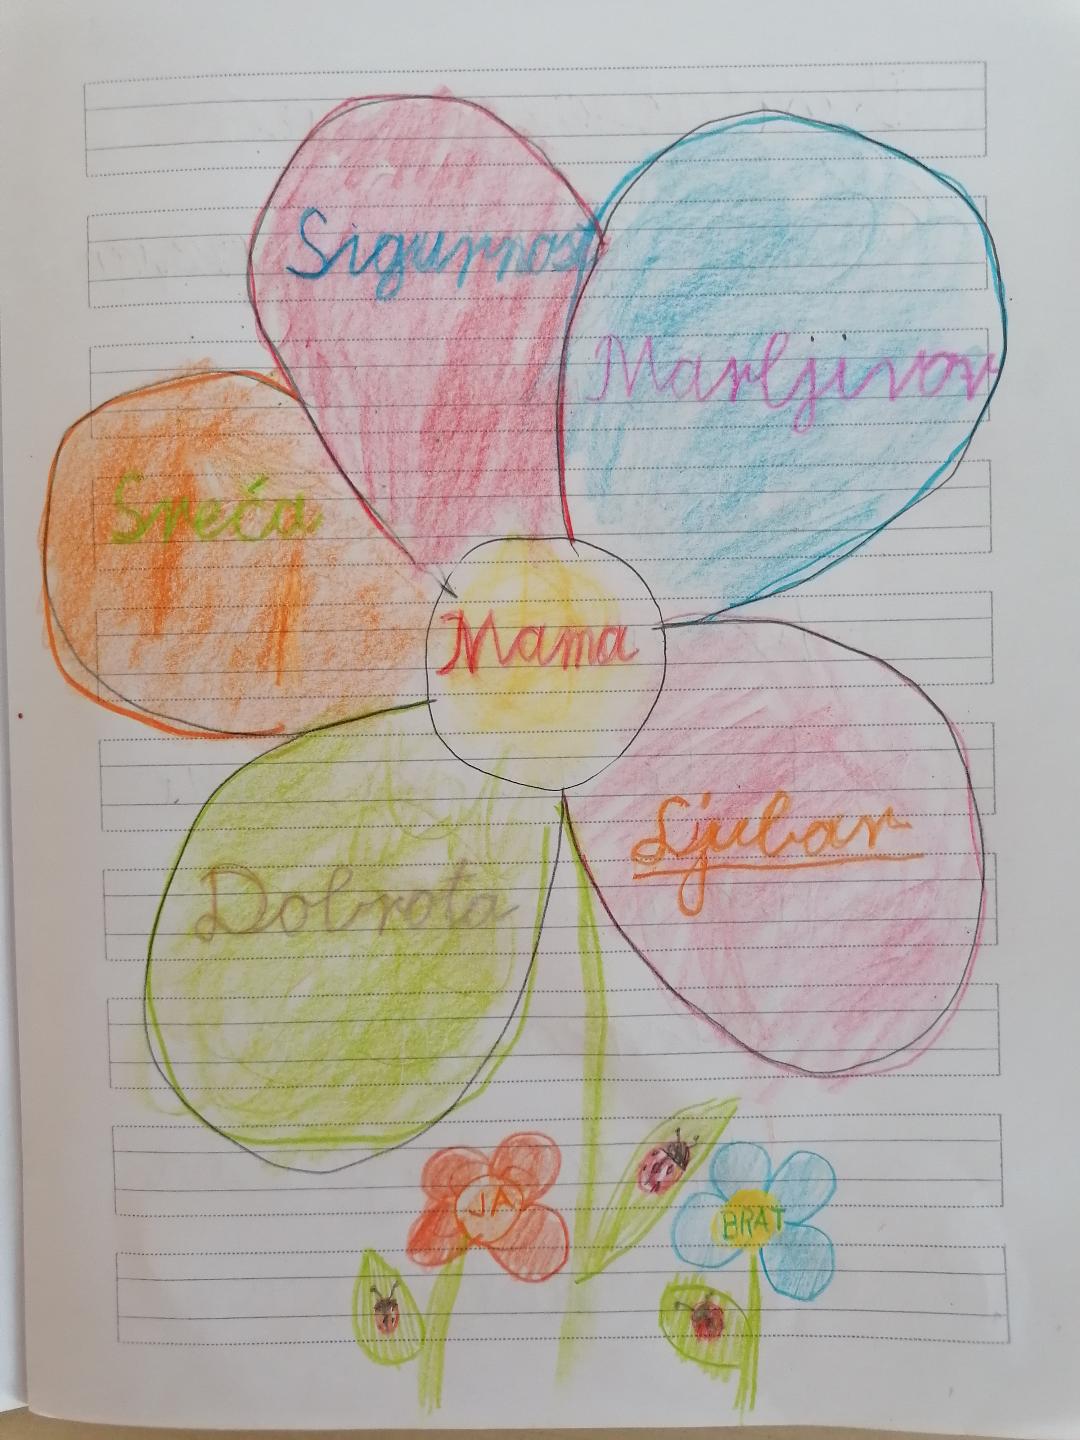 Sigurnost
Marljivost
Sreća
Mama
Ljubav
Dobrota
JA
BRAT